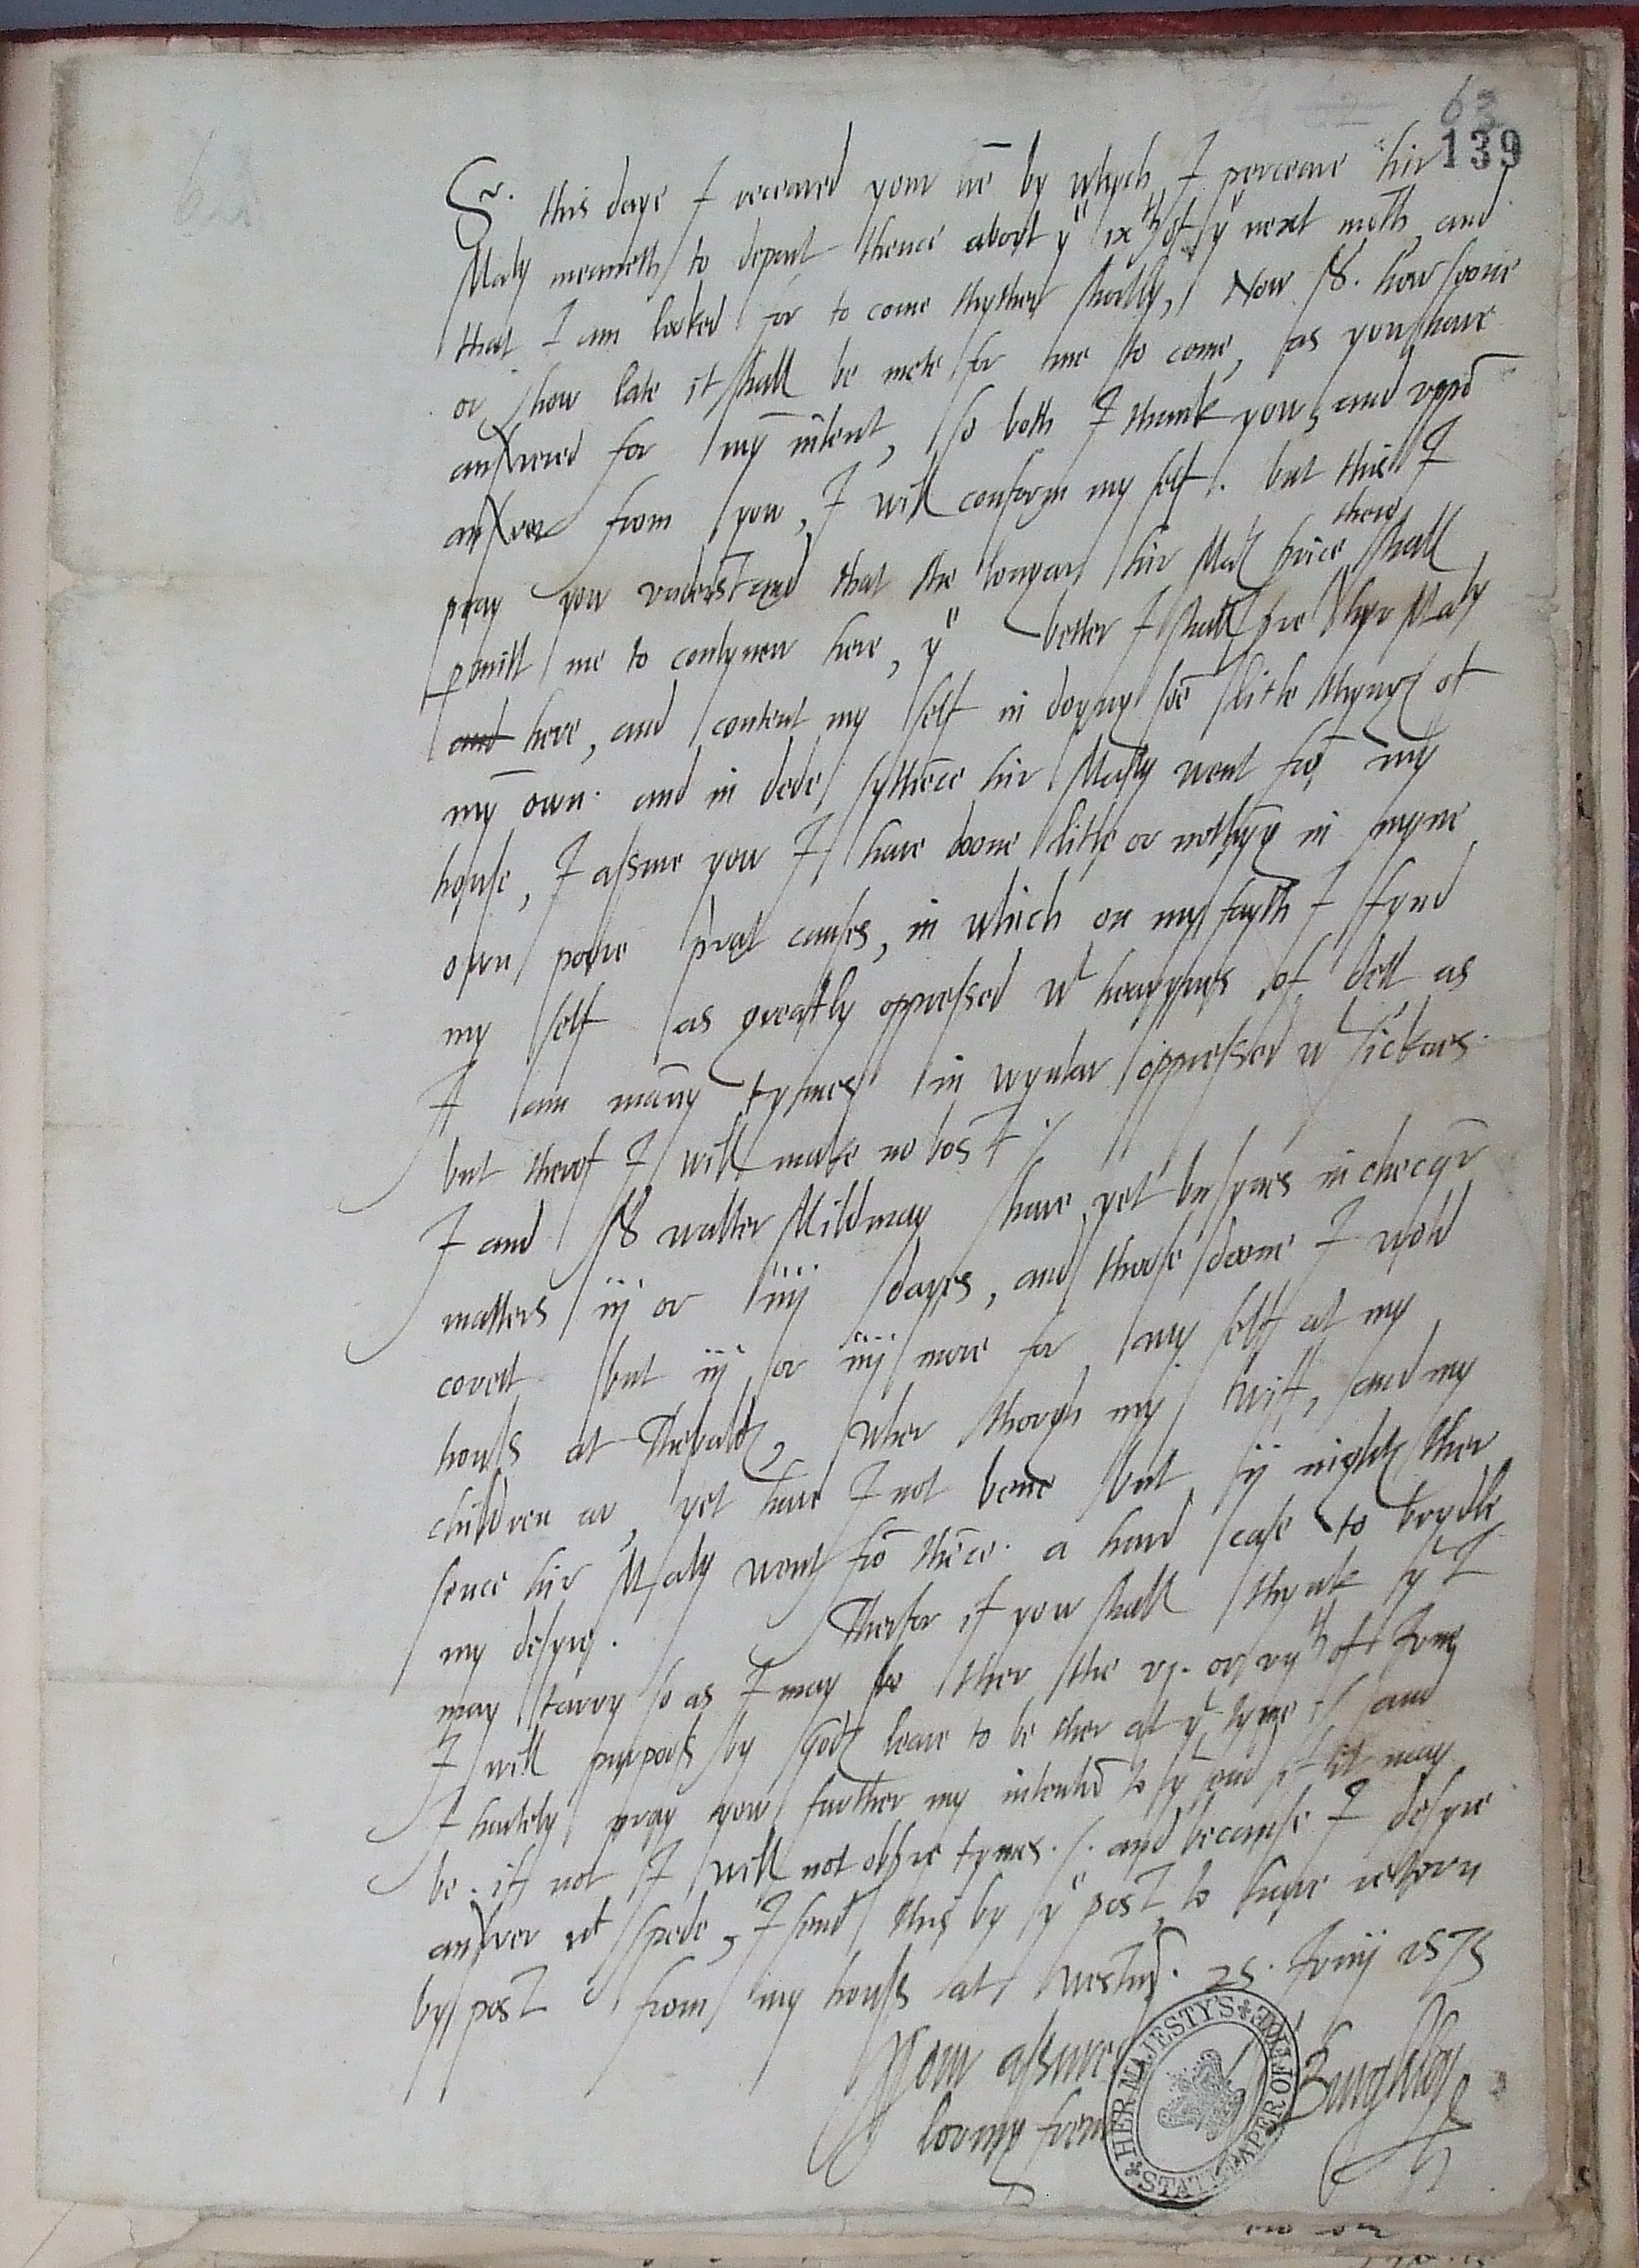 63
139
Sr. this daye I receaved your lre by which I perceave hir
Maty meaneth to depart thence about ye ixth of ye next moth, and
that I am looked for to come thyther shortly, Now Sr. how soone
or how late it shall be mete for me to come, as you have
answered for my intent, so both I thank you, and uppō
answer from you, I will conform my self. but this I
pray you understand that the longar hir Maty there shall
pmitt me to contynew here, ye better I shall serve hyr Maty
and here, and content my self in doyng sōe litle thyngs of
my own. and in dede sythēce hir Maty went frō my
house, I assure you I have doone litle or nothyng in myne
own poore privat causes, in which on my fayth I fynd
my self as greatly oppressed wt heavynes of dett as
I am many tymes in wyntar oppressed wt sicknes.
but therof I will make no bost ./
I and Sr walter Mildmay have yet busynes in checqr
matters iij or iiij dayes, and those doone I wold
covett but iij or iiij more for my self at my
houss at Thebalds, wher though my wiff, and my
children ar, yet have I not bene but ij nights ther
sence hir Maty went frō thēce. a hard case to brydle
my desyres. Therfor if you shall thynk yt I
may tarry so as I may be ther the vj. or vijth of
I will purposs by Gods leave to be ther at yt tyme ./ and
I hartely pray you further my intent to yt end if it may
be. if not I will not observe tymes ./. and because I desyre
answer wt spede, I send this by ye post to have retorn
by post from my houss at Westmr. 25. Junij 1575
Your assured
lovyng frend
W Burghley
HER MAJESTY'S STATE PAPER OFFICE